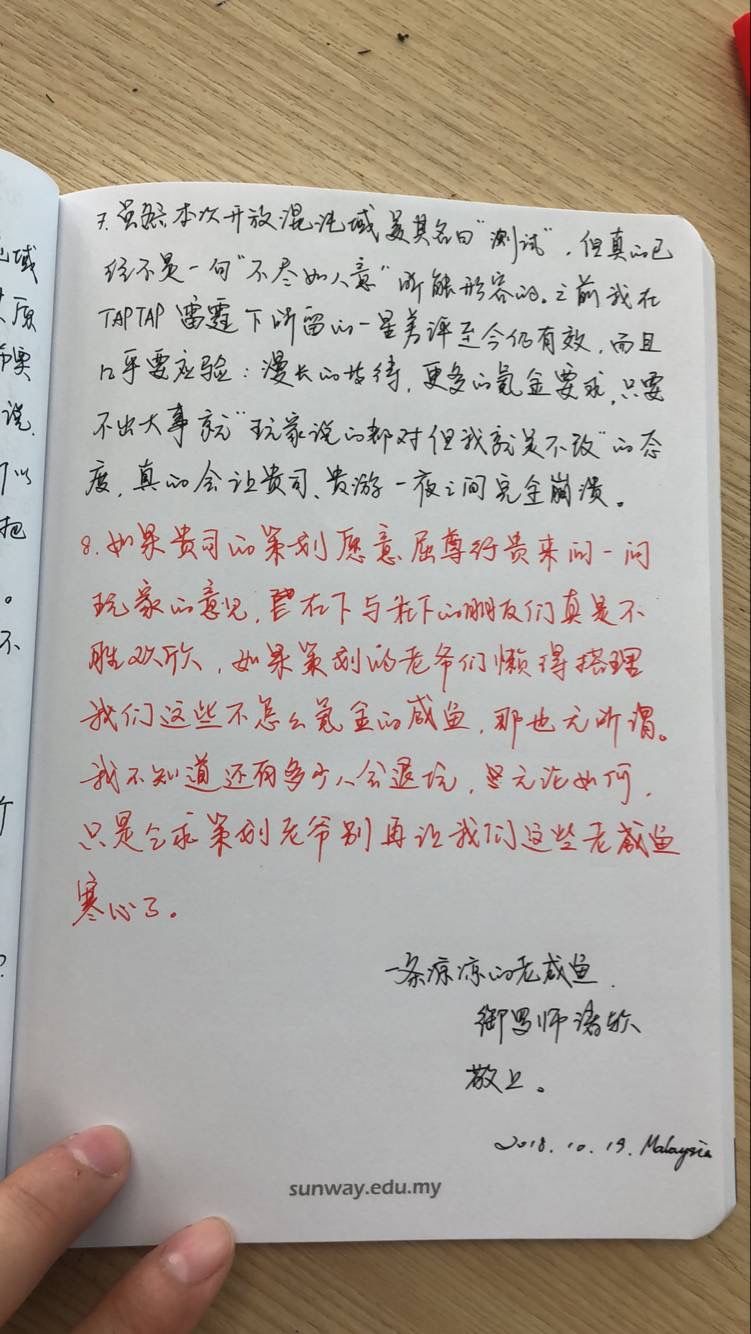 域
原
说.
可以
把
。
不
7. 虽然本次开放混沌域美其名曰"测试", 但真的已
经不是一句"不尽如人意"所能形容的。之前我在
TAPTAP 雷霆下所留的一星差评至今仍有效, 而且
几乎要应验: 漫长的等待, 更多的氪金要求, 只要
不出大事就"玩家说的都对但我就是不改"的态
度, 真的会让贵司、贵游一夜之间完全崩溃。
8. 如果贵司的策划愿意屈尊行贵来问一问
玩家的意见, 在下与在下的朋友们真是不
胜欢欣, 如果策划的老爷们懒得搭理
我们这些不怎么氪金的咸鱼, 那也无所谓。
我不知道还有多少人会退坑, 但无论如何,
只是乞求策划老爷别再让我们这些老咸鱼
寒心了。
一条凉凉的老咸鱼
御 师诸
敬上。
2018.10.19. Malaysia
sunway.edu.my